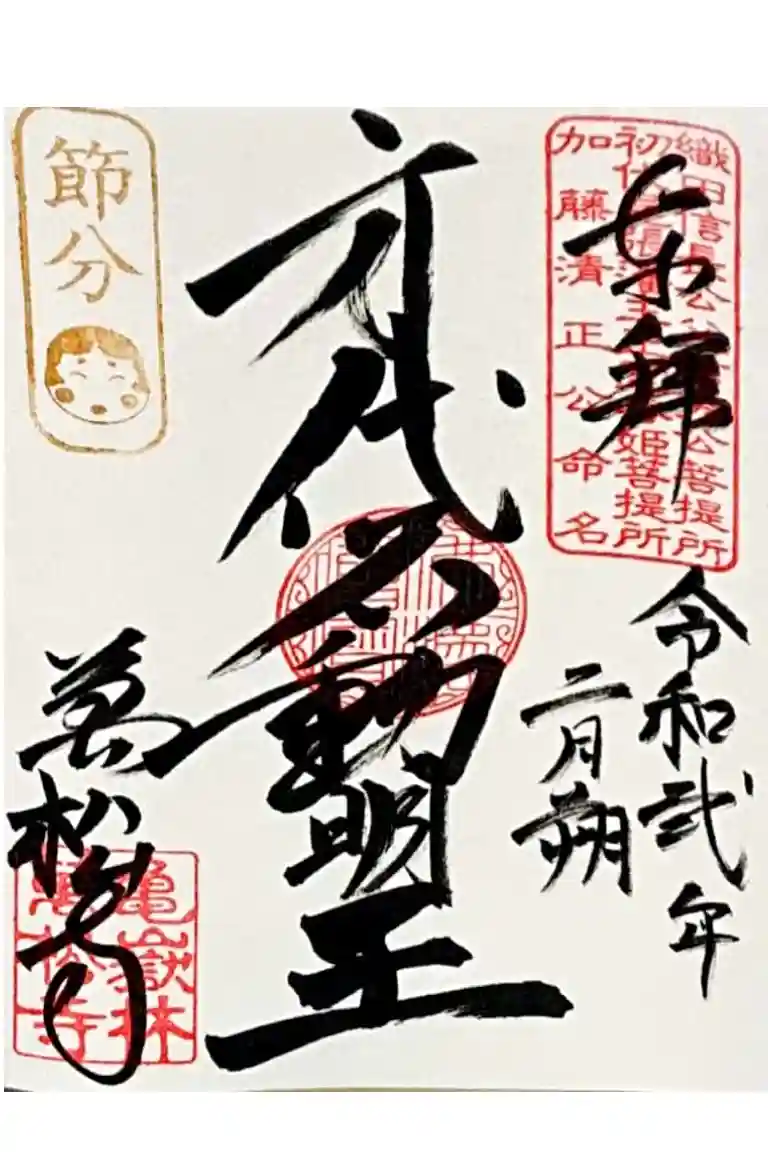 奉拝
織田信長公 公菩提所
初代尾張藩主 姫菩提所
加藤清正公命名
令和弐年
二月朔
身代不動明王
節分
萬松寺
亀嶽林
萬松寺